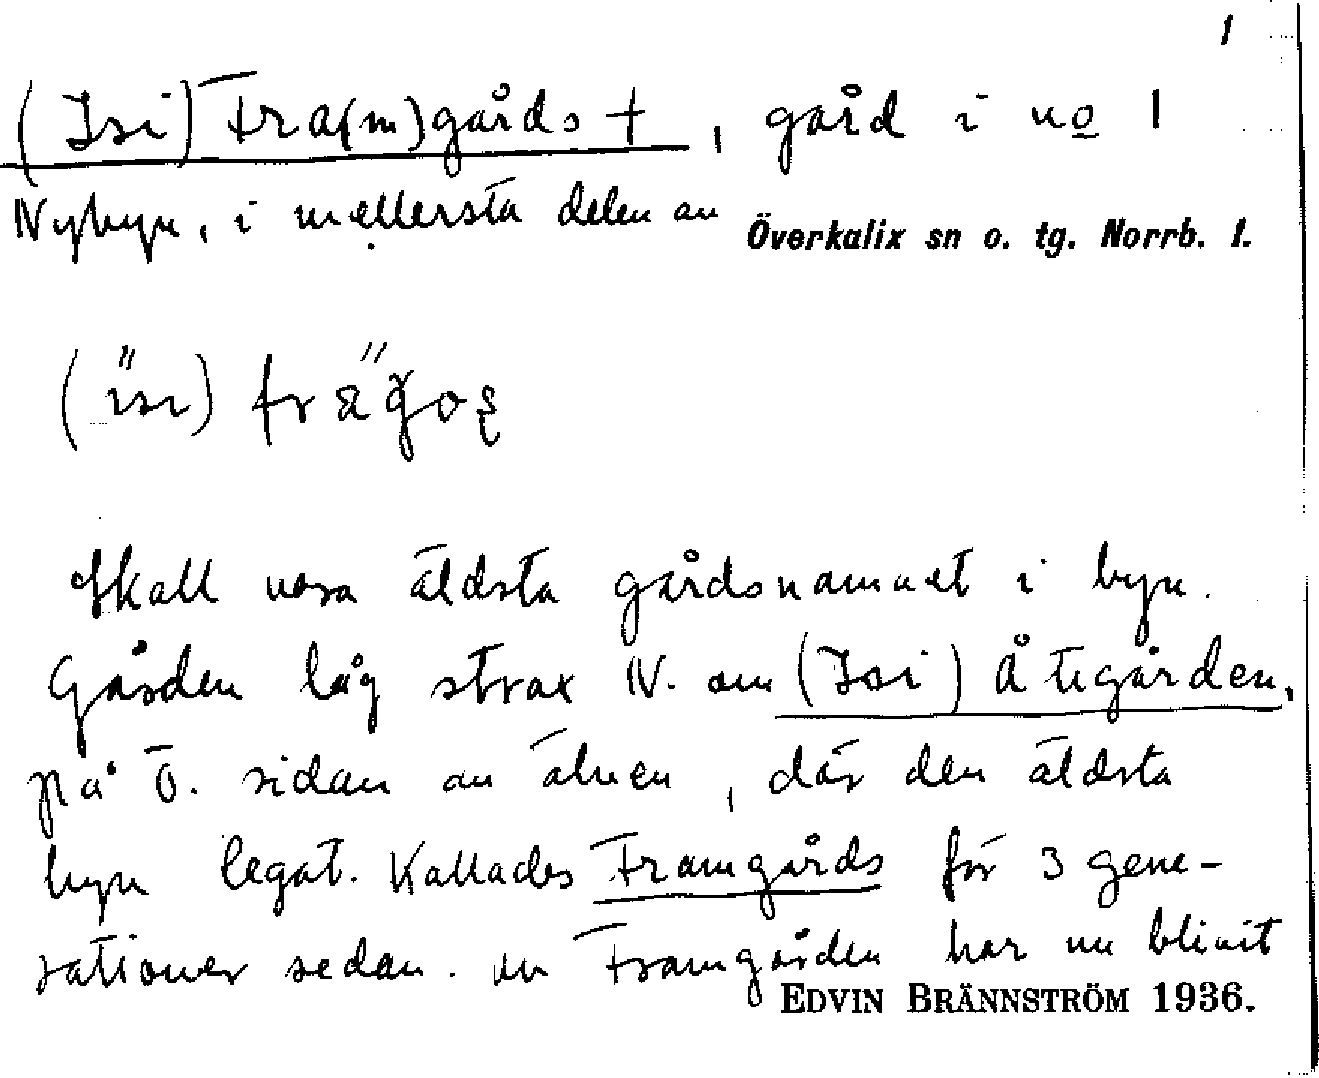 1
(Isi) Fra(m)gårds †, gård i no 1
Nybyn, i mellersta delen av
Överkalix sn o. tg. Norrb. l.
(ïsi)
Skall vara äldsta gårdsnamnet i byn.
Gården låg strax N. om (Isi) Åtigården,
på Ö. sidan av älven, där den äldsta
byn legat. Kallades Framgårds för 3 gene-
rationer sedan. Framgården har nu blivit
EDVIN BRÄNNSTRÖM 1936.